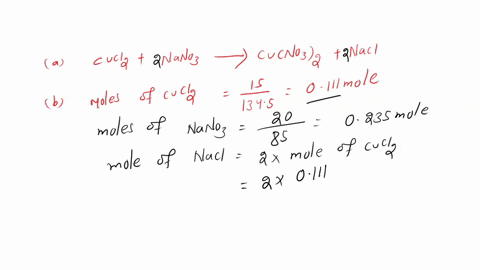 (a) CuCl2 + 2NaNO3 ⟶ Cu(NO3)2 + 2NaCl
(b) Moles of CuCl2 = 15/134.5 = 0.111 mole
moles of NaNO3 = 20/85 = 0.235 mole
mole of NaCl = 2 x mole of CuCl2
= 2 x 0.111